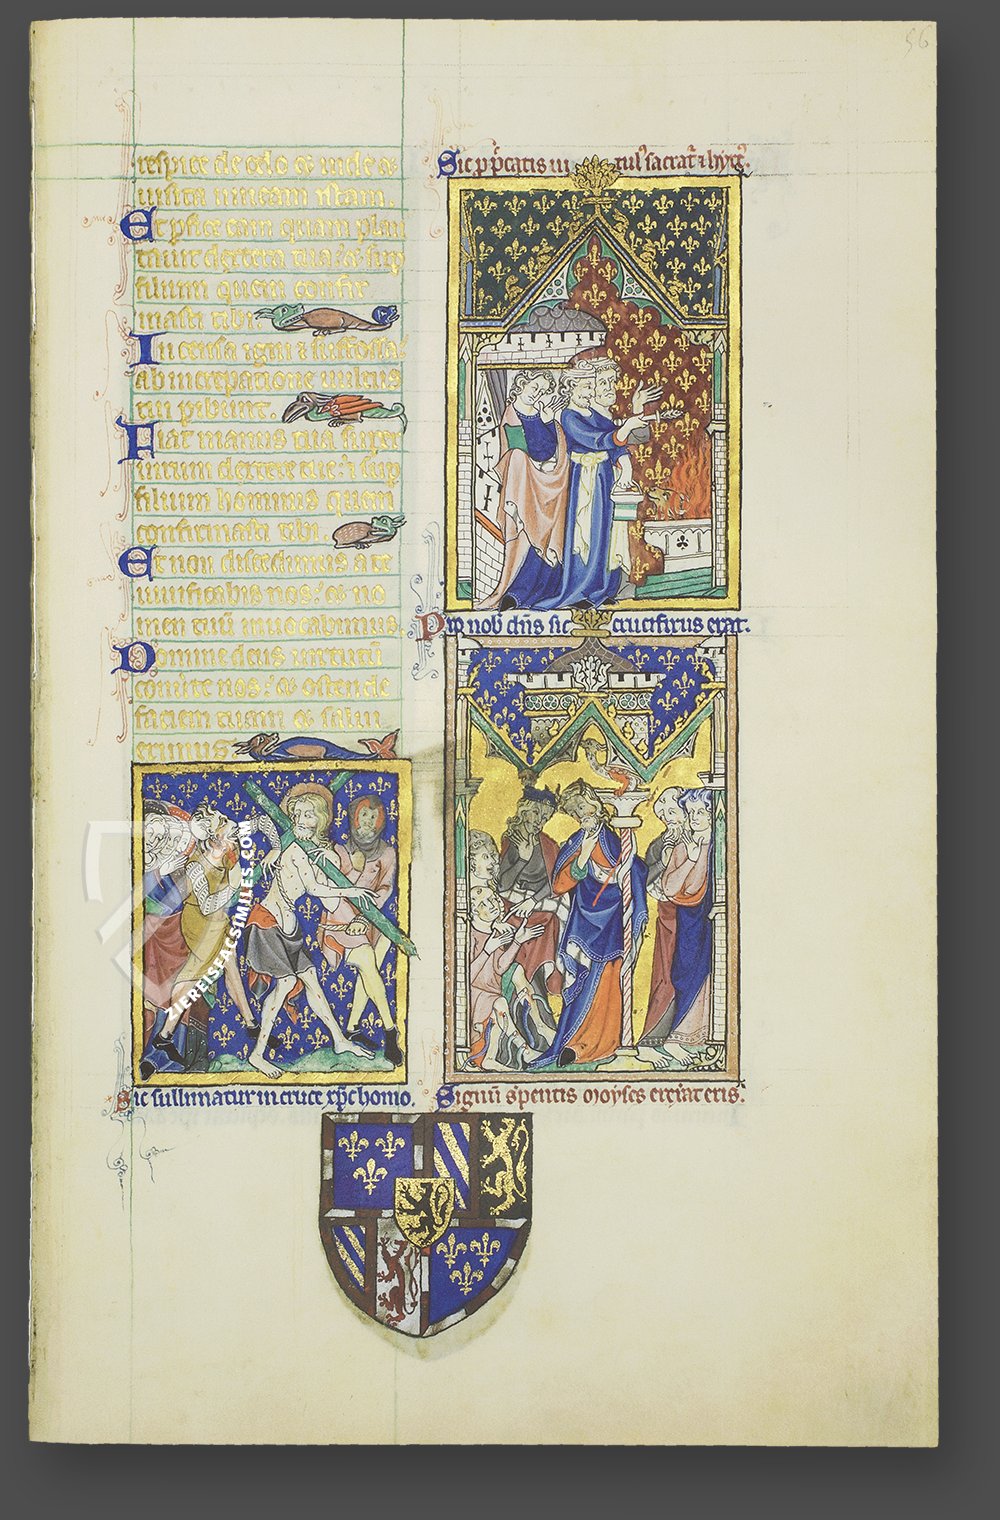 respice de celo et vide et
visita vineam istam.
Et perfice eam quam plan
tavit dextera tua: et sup
filium quem confir
masti tibi.
Incensa igni et suffossa
ab increpatione vultus
tui peribunt.
Fiat manus tua super
virum dextere tue: et sup
filium hominis quem
confirmasti tibi.
Et non discedimus a te
vivificabis nos: et no
men tuũ invocabimus.
Domine deus virtutũ
converte nos: et ostende
faciem tuam et salvi
erimus.
Sic sullimatur in cruce xp̃c homo.
56
Sic p pctãtis
Pro nob dñs sic crucifixus erat.
Signũ serpentis Moyses
ZIEREISFACSIMILES.COM